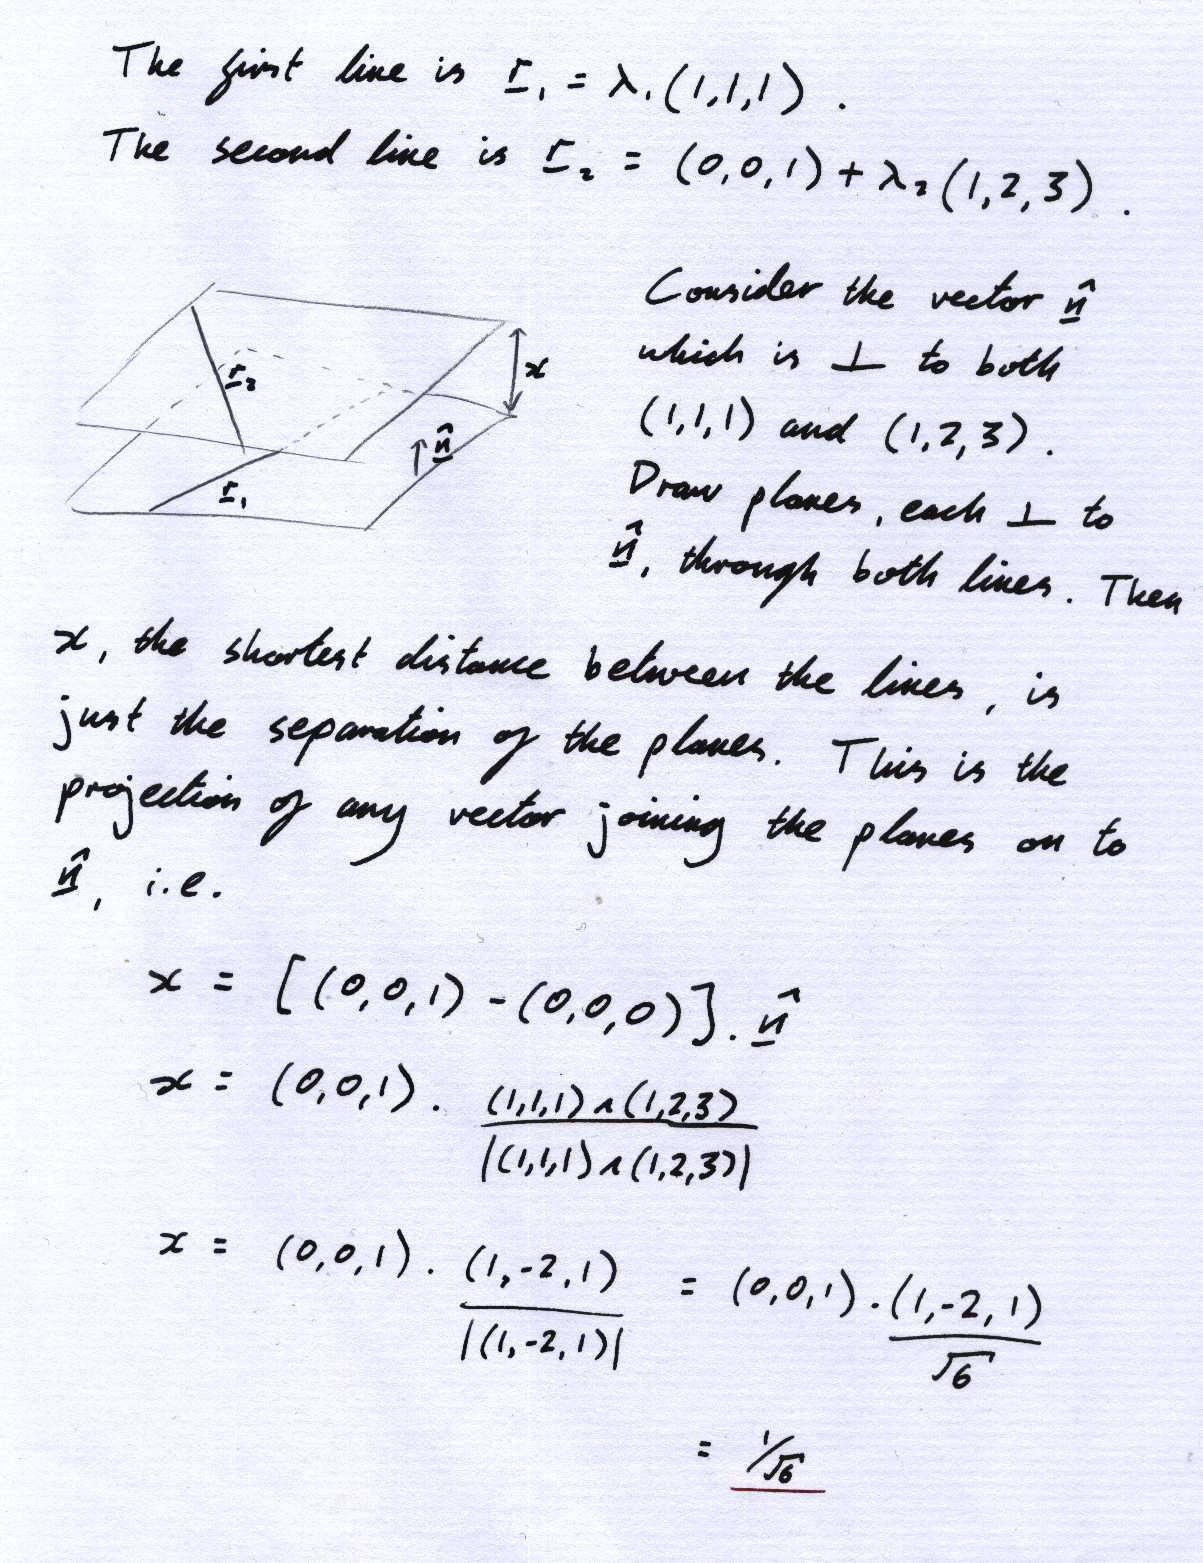 The first line is r̲₁ = λ₁(1,1,1) .
The second line is r̲₂ = (0,0,1) + λ₂(1,2,3) .
Consider the vector n̲̂
which is ⊥ to both
(1,1,1) and (1,2,3) .
Draw planes, each ⊥ to
n̲̂, through both lines. Then
r̲₂
x
n̲̂
r̲₁
x, the shortest distance between the lines, is
just the separation of the planes. This is the
projection of any vector joining the planes on to
n̲̂, i.e.
x = [(0,0,1) - (0,0,0)] . n̲̂
x = (0,0,1) . (1,1,1)∧(1,2,3)
|(1,1,1)∧(1,2,3)|
x = (0,0,1) . (1,-2,1) = (0,0,1) . (1,-2,1)
|(1,-2,1)| √6
= 1/√6